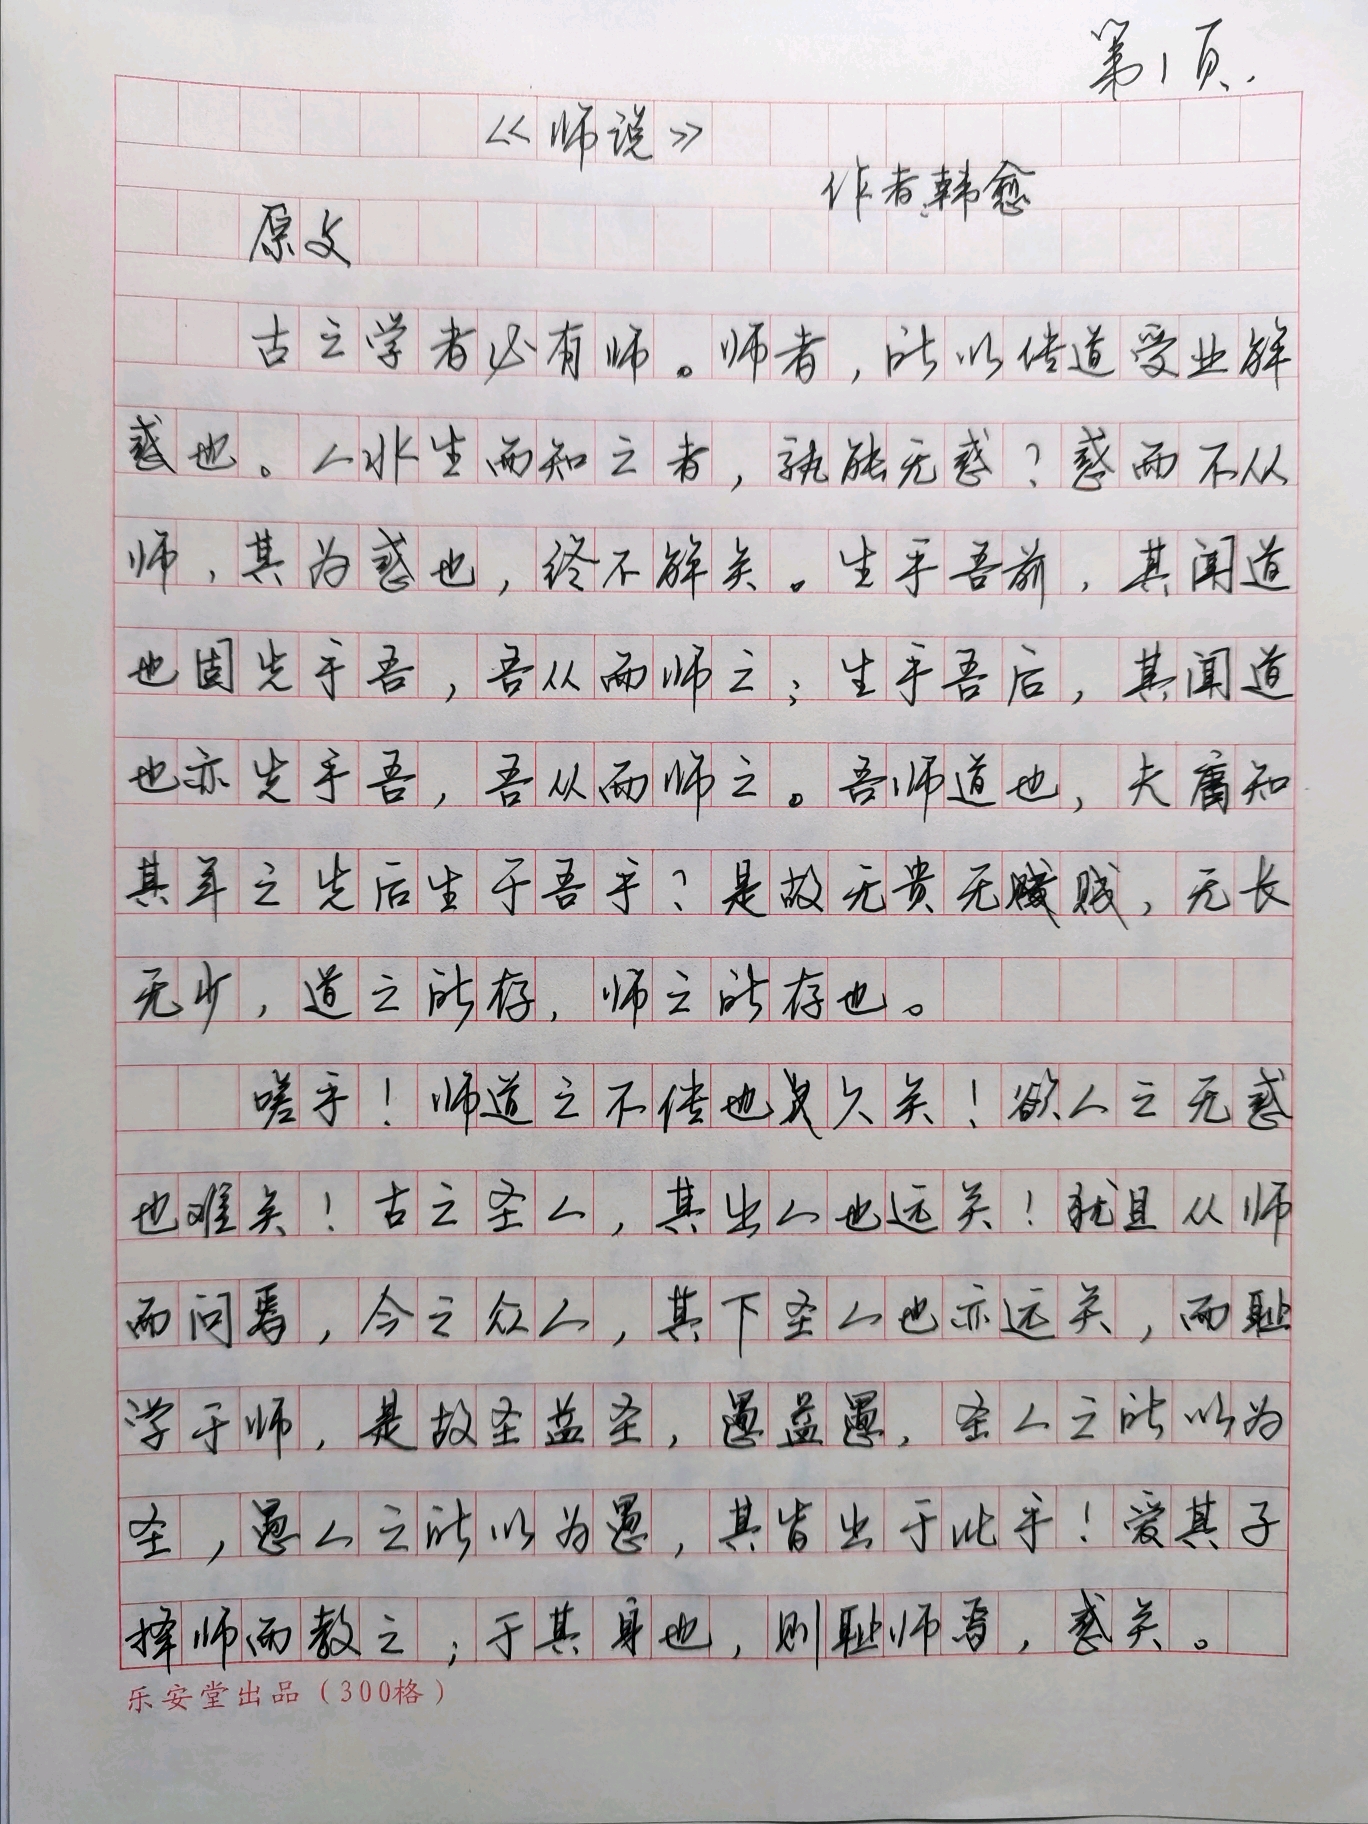 第1页.
《师说》
作者韩愈
原文
古之学者必有师。师者,所以传道受业解
惑也。人非生而知之者,孰能无惑?惑而不从
师,其为惑也,终不解矣。生乎吾前,其闻道
也固先乎吾,吾从而师之;生乎吾后,其闻道
也亦先乎吾,吾从而师之。吾师道也,夫庸知
其年之先后生于吾乎?是故无贵无贱,无长
无少,道之所存,师之所存也。
嗟乎!师道之不传也久矣!欲人之无惑
也难矣!古之圣人,其出人也远矣!犹且从师
而问焉,今之众人,其下圣人也亦远矣,而耻
学于师,是故圣益圣,愚益愚,圣人之所以为
圣,愚人之所以为愚,其皆出于此乎!爱其子
择师而教之;于其身也,则耻师焉,惑矣。
乐安堂出品(300格)